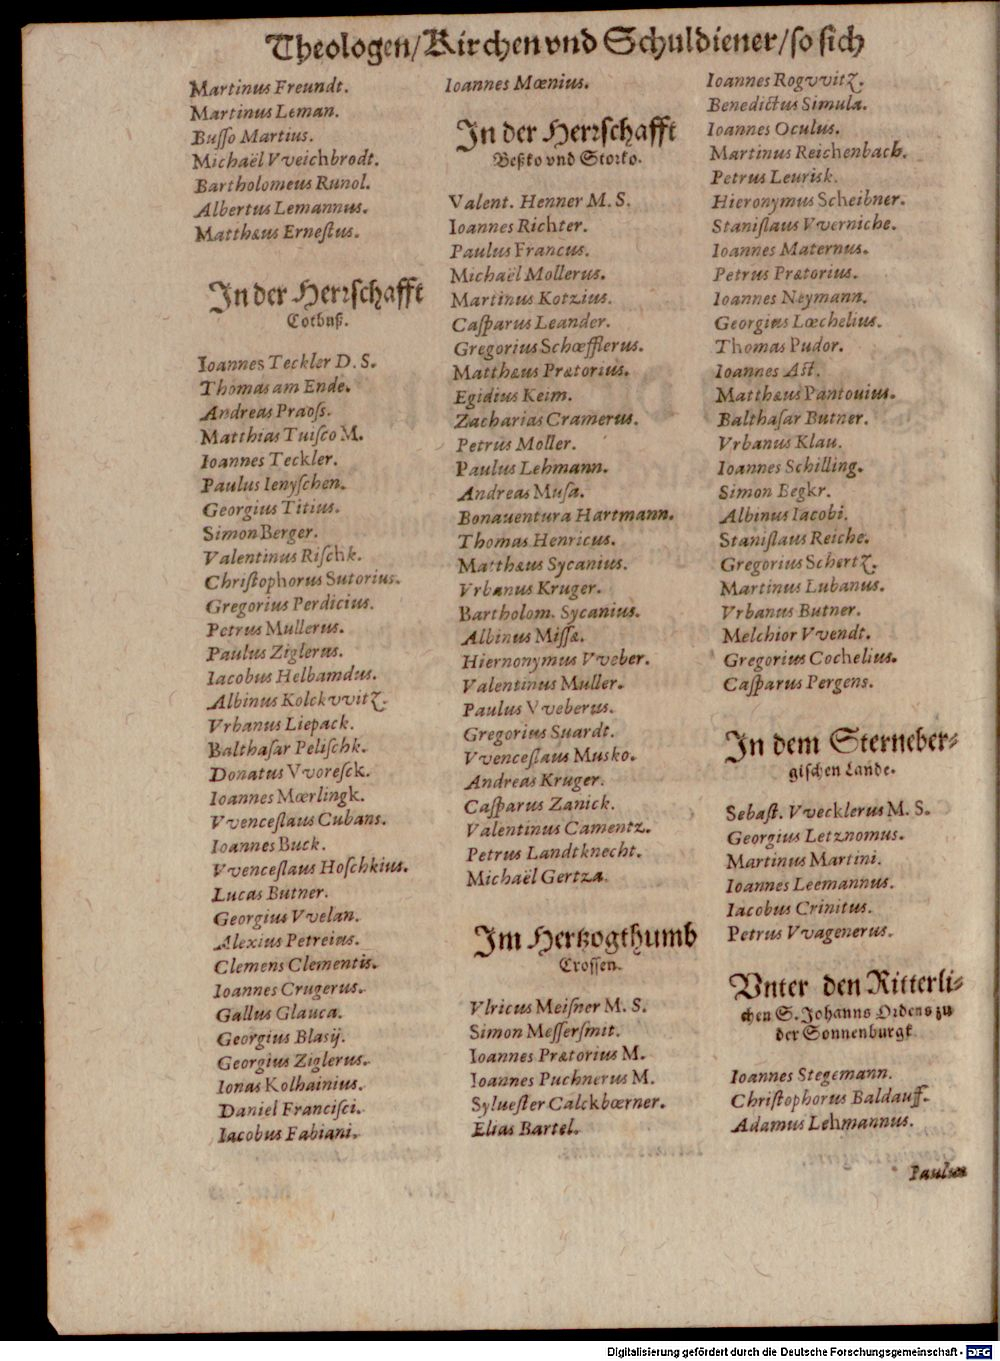 Theologen/Kirchen vnd Schuldiener/so sich
Martinus Freundt.
Martinus Leman.
Busſo Martius.
Michaël Vveichbrodt.
Bartholomeus Runol.
Albertus Lemannus.
Matthæus Erneſtus.
In der Herrſchafft
Cotbuß.
Ioannes Teckler D. S.
Thomas am Ende.
Andreas Praoſs.
Matthias Tuiſco M.
Ioannes Teckler.
Paulus Ienyſchen.
Georgius Titius.
Simon Berger.
Valentinus Riſchk.
Chriſtophorus Sutorius.
Gregorius Perdicius.
Petrus Mullerus.
Paulus Ziglerus.
Iacobus Helbamdus.
Albinus Kolckvvitz.
Vrbanus Liepack.
Balthaſar Peliſchk.
Donatus Vvoreſck.
Ioannes Mœrlingk.
Vvenceſlaus Cubans.
Ioannes Buck.
Vvenceſlaus Hoſchkius.
Lucas Butner.
Georgius Vvelan.
Alexius Petreius.
Clemens Clementis.
Ioannes Crugerus.
Gallus Glauca.
Georgius Blasij.
Georgius Ziglerus.
Ionas Kolhainius.
Daniel Franciſci.
Iacobus Fabiani.
Ioannes Mœnius.
In der Herrſchafft
Beßko vnd Storko.
Valent. Henner M. S.
Ioannes Richter.
Paulus Francus.
Michaël Mollerus.
Martinus Kotzius.
Caſparus Leander.
Gregorius Schœfflerus.
Matthæus Prætorius.
Egidius Keim.
Zacharias Cramerus.
Petrus Moller.
Paulus Lehmann.
Andreas Muſa.
Bonauentura Hartmann.
Thomas Henricus.
Matthæus Sycanius.
Vrbanus Kruger.
Bartholom. Sycanius.
Albinus Miſſæ.
Hiernonymus Vveber.
Valentinus Muller.
Paulus Vveberus.
Gregorius Suardt.
Vvenceſlaus Musko.
Andreas Kruger.
Caſparus Zanick.
Valentinus Camentz.
Petrus Landtknecht.
Michaël Gertza.
Im Hertzogthumb
Croſſen.
Vlricus Meiſner M. S.
Simon Meſſerſmit.
Ioannes Prætorius M.
Ioannes Puchnerus M.
Sylueſter Calckbœrner.
Elias Bartel.
Ioannes Rogvvitz.
Benedictus Simula.
Ioannes Oculus.
Martinus Reichenbach.
Petrus Leurisk.
Hieronymus Scheibner.
Staniſlaus Vverniche.
Ioannes Maternus.
Petrus Prætorius.
Ioannes Neymann.
Georgius Lœchelius.
Thomas Pudor.
Ioannes Aſt.
Matthæus Pantouius.
Balthaſar Butner.
Vrbanus Klau.
Ioannes Schilling.
Simon Begkr.
Albinus Iacobi.
Staniſlaus Reiche.
Gregorius Schertz.
Martinus Lubanus.
Vrbanus Butner.
Melchior Vvendt.
Gregorius Cochelius.
Caſparus Pergens.
In dem Sterneber⸗
giſchen Lande.
Sebaſt. Vvecklerus M. S.
Georgius Letznomus.
Martinus Martini.
Ioannes Leemannus.
Iacobus Crinitus.
Petrus Vvagenerus.
Vnter den Ritterli⸗
chen S. Johanns Ordens zu
der Sonnenburgk
Ioannes Stegemann.
Chriſtophorus Baldauff.
Adamus Lehmannus.
Paulus
Digitalisierung gefördert durch die Deutsche Forschungsgemeinschaft - DFG